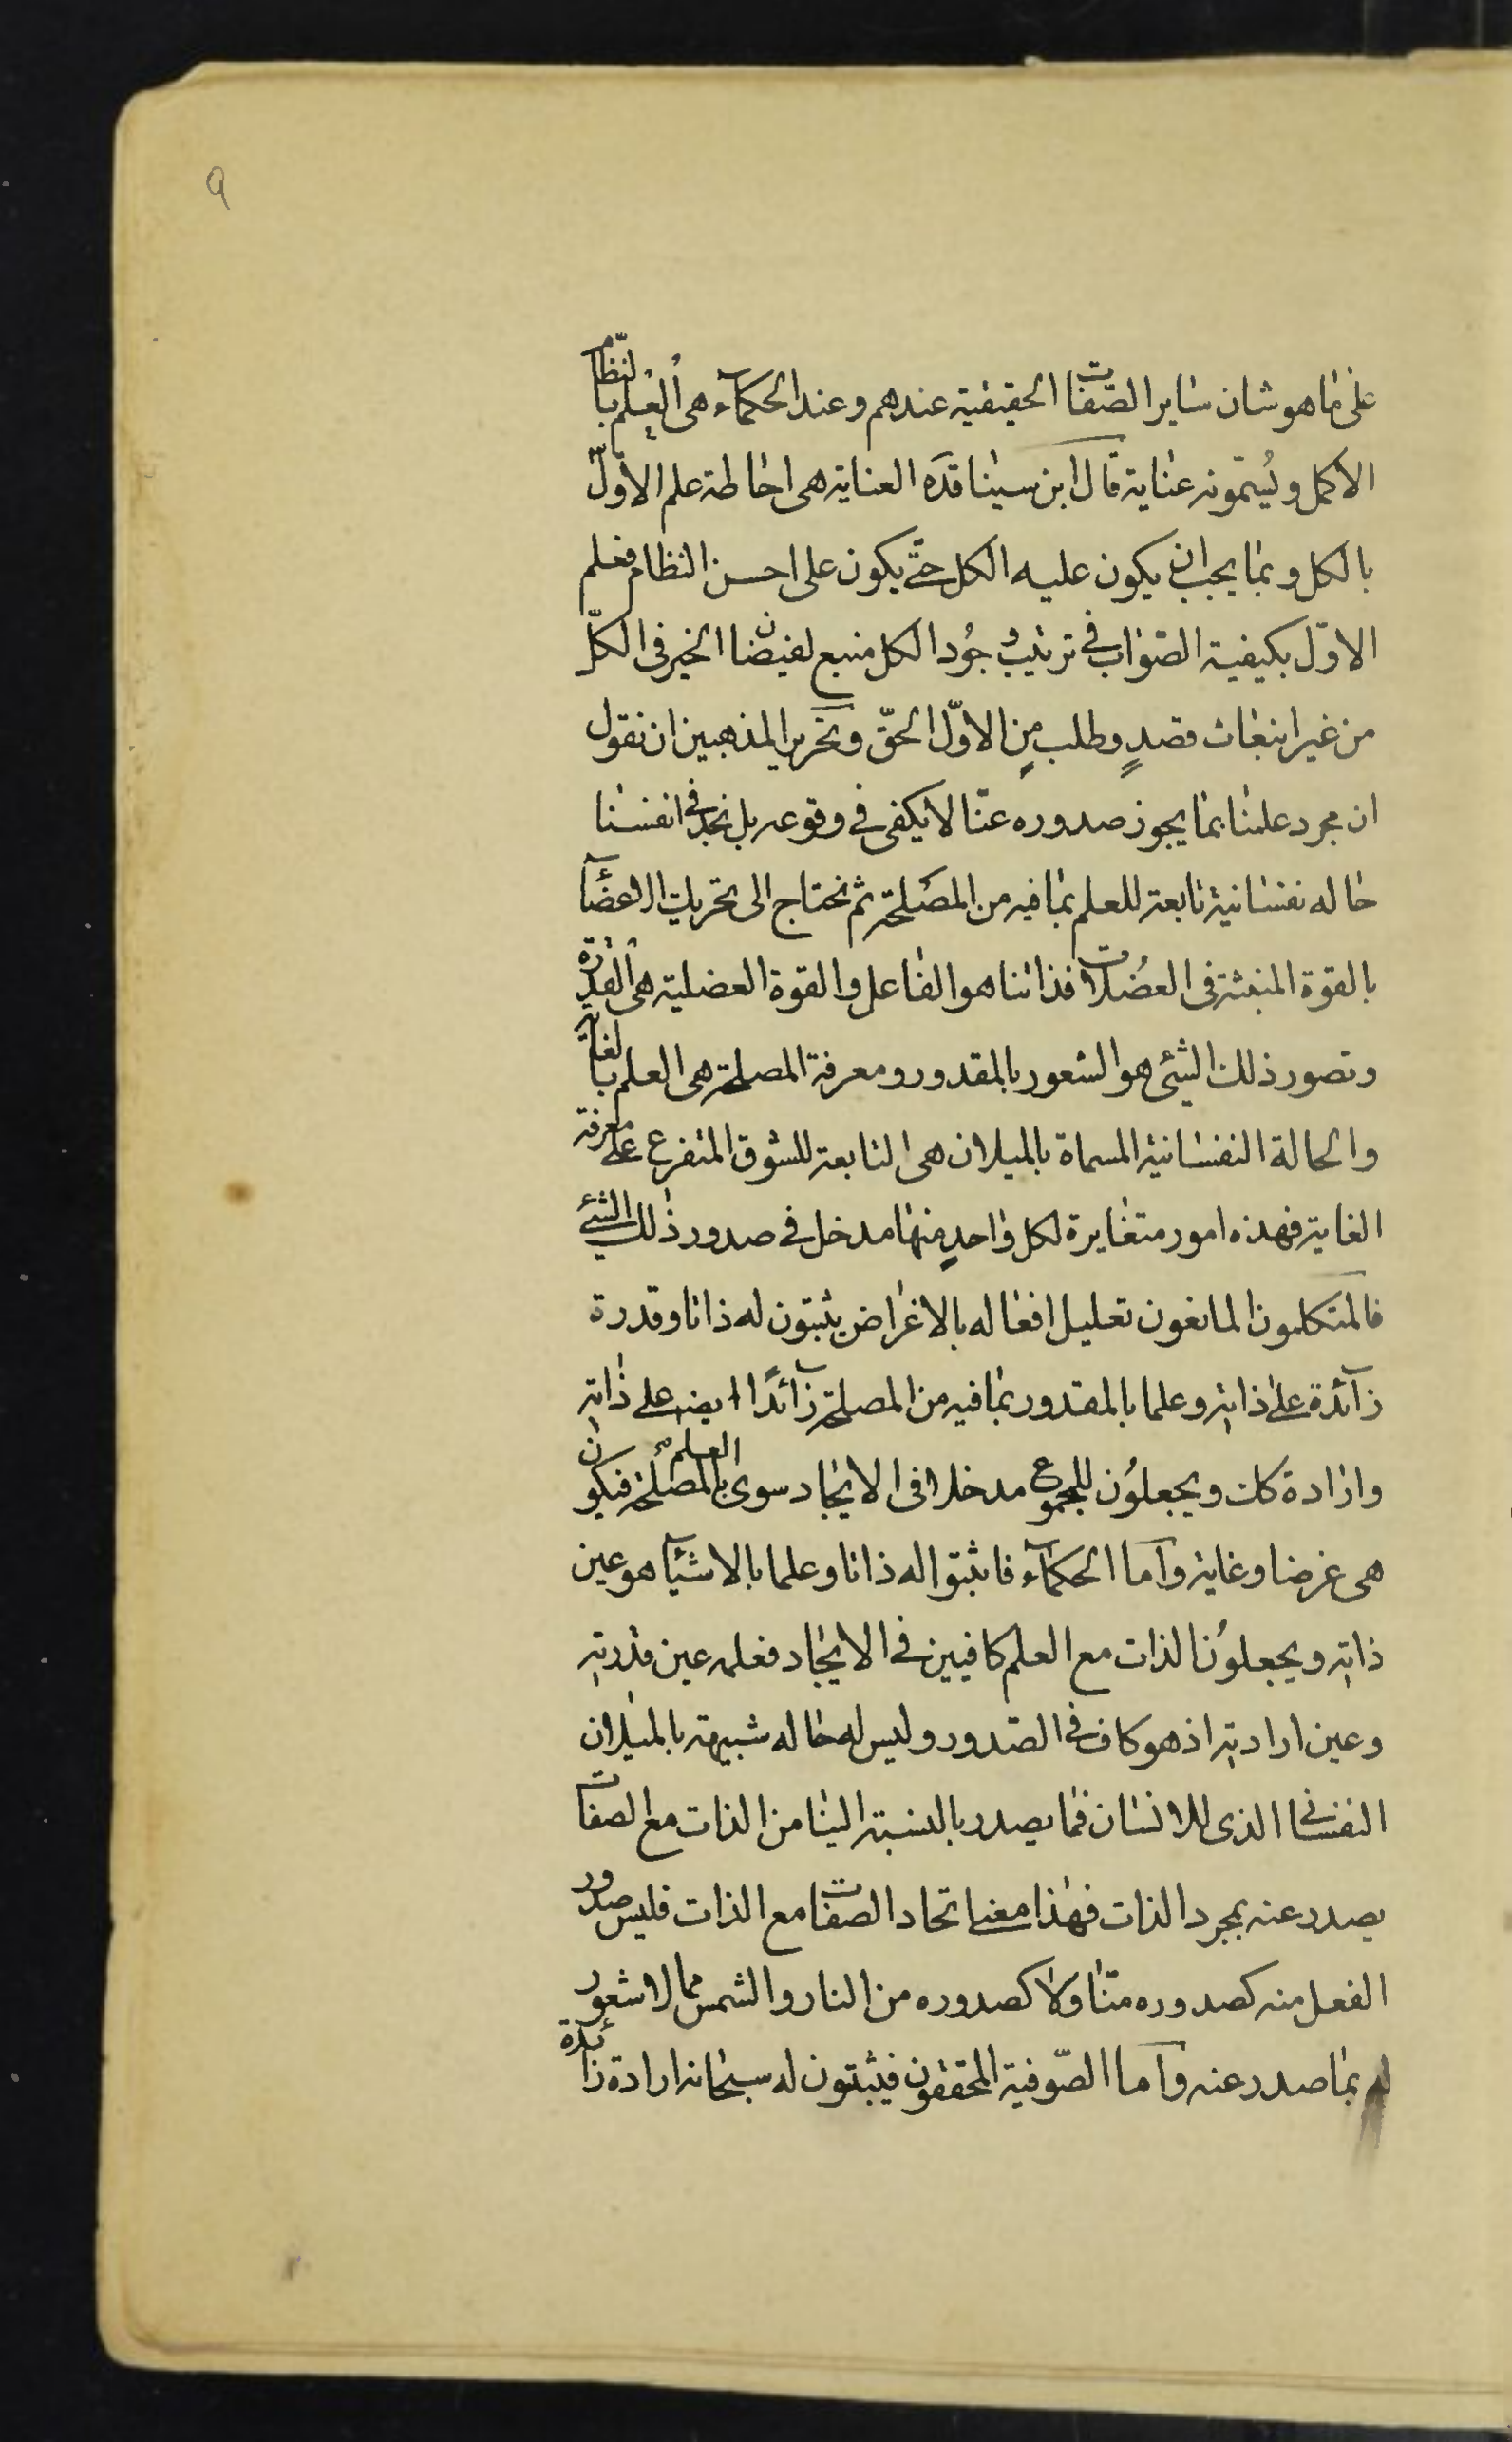 ٩
على ما هو شان ساير الصّفات الحقيقية عندهم وعند الحكمآء هى العلم بالنّظام
الاكمل ويُسمّونه عناية قال ابن سينا قدّه العناية هى احاطة علم الاوّل
بالكل وبما يجب ان يكون عليه الكل حتّى يكون على احسن النظام فعلم
الاوّل بكيفية الصّواب فى ترتيب وجُود الكل منبع لفيضان الخير فى الكلّ
من غير انبعاث قصدٍ وطلب مِن الاوّل الحقّ وتحرير المذهبين ان نقول
ان مجرد علمنا بما يجوز صدوره عنّا لا يكفى فى وقوعه بل نجد فى انفسنا
حاله نفسانية تابعة للعلم بما فيه من المصلحة ثم نحتاج الى تحريك الاعضآء
بالقوة المنبثة فى العضُلات فذاتنا هو الفاعل والقوة العضلية هى القدرة
وتصور ذلك الشئ هو الشعور بالمقدور ومعرفة المصلحة هى العلم بالغاية
والحالة النفسانية المسماة بالميلان هى التابعة للشوق المتفرع على معرفة
الغاية فهذه امور متغايرة لكل واحدٍ منها مدخل فى صدور ذلك الشئ
فالمتكلمون المانعون تعليل افعاله بالاغراض يثبتون له ذاتا وقدرة
زآئدة على ذاته وعلما بالمقدور بما فيه من المصلحة زآئدًا ايضا على ذاته
وارادة كك ويجعلوُن للمجموع مدخلا فى الايجاد سوى العلم بالمصلحة فيكون
هى غرضا وغاية وآما الحكمآء فاثبتوا له ذاتا وعلما بالاشيآء هو عين
ذاته ويجعلوُن الذات مع العلم كافيين فى الايجاد فعلمه عين قدرته
وعين ارادته اذ هو كاف فى الصّدور وليس له حاله شبيهة بالميلان
النفسانى الذى للانسان فما يصدر بالنسبة الينا من الذات مع الصفات
يصدر عنه بمجرد الذات فهذا معنى اتحاد الصفات مع الذات فليس صدور
الفعل منه كصدوره منّا ولا كصدوره من النار والشمس مما لا شعور
له بما صدر عنه وآما الصّوفية المحققون فيثبتون له سبحانه ارادة زائدة